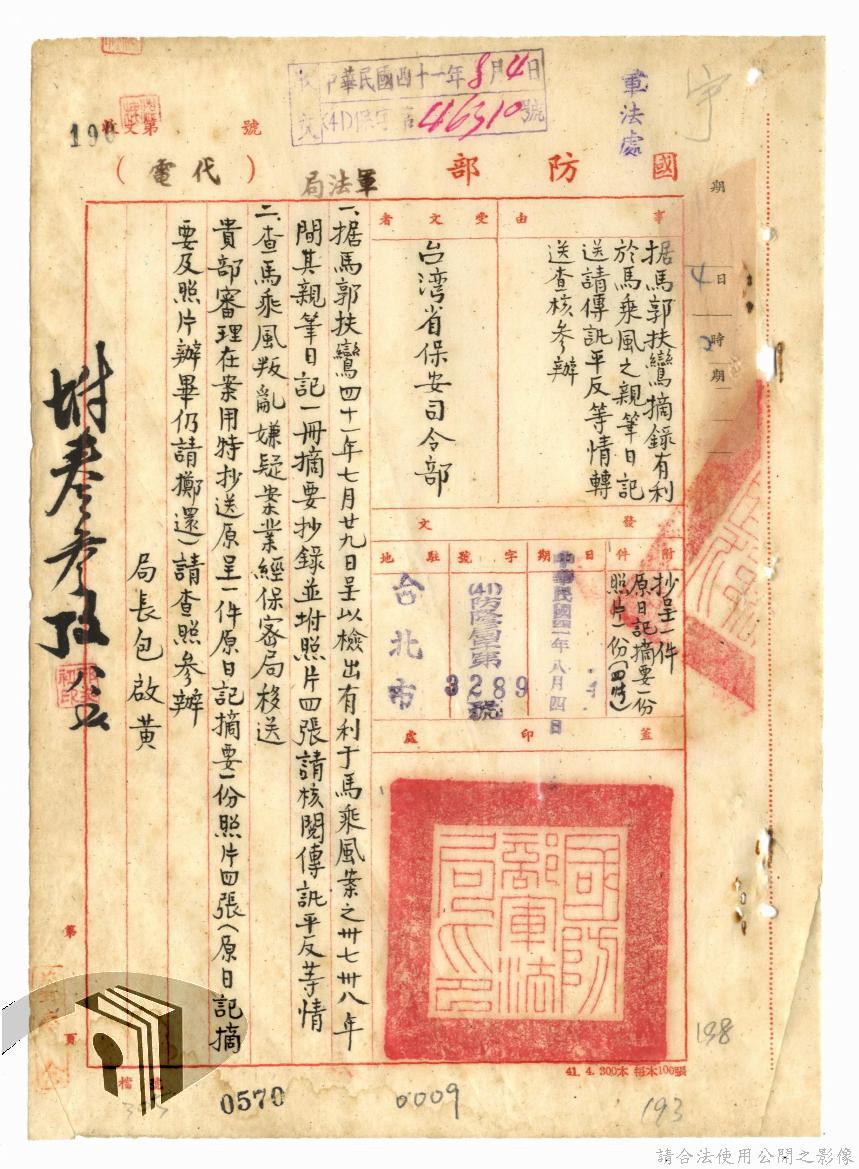 收 中華民國四十一年8月4日
文 (41)保字 46310號
軍法處
宇
190
收文第 號
國防部
軍法局
(代電)
事由
据馬郭扶鸞摘錄有利
於馬乘風之親筆日記
送請傳訊平反等情轉
送查核參辦
受文者
台湾省保安司令部
發文
附件
抄呈一件
原日記摘要一份
照片一份(四張)
日期
中華民國四一年八月四日
字號
(41)防隆
第
3289
號
駐地
台北市
蓋印處
國防部軍法局印
一、据馬郭扶鸞四十一年七月廿九日呈以檢出有利于馬乘風案之卅七卅八年
間其親筆日記一冊摘要抄錄並坿照片四張請核閱傳訊平反等情
二、查馬乘風叛亂嫌疑案業經保密局移送
貴部審理在案用特抄送原呈一件原日記摘要一份照片四張(原日記摘
要及照片辦畢仍請擲還)請查照參辦
局長包啟黃
期
4日
時
期
第
頁
檔號
41. 4. 300本 每本100張
0570
0009
198
193
請合法使用公開之影像